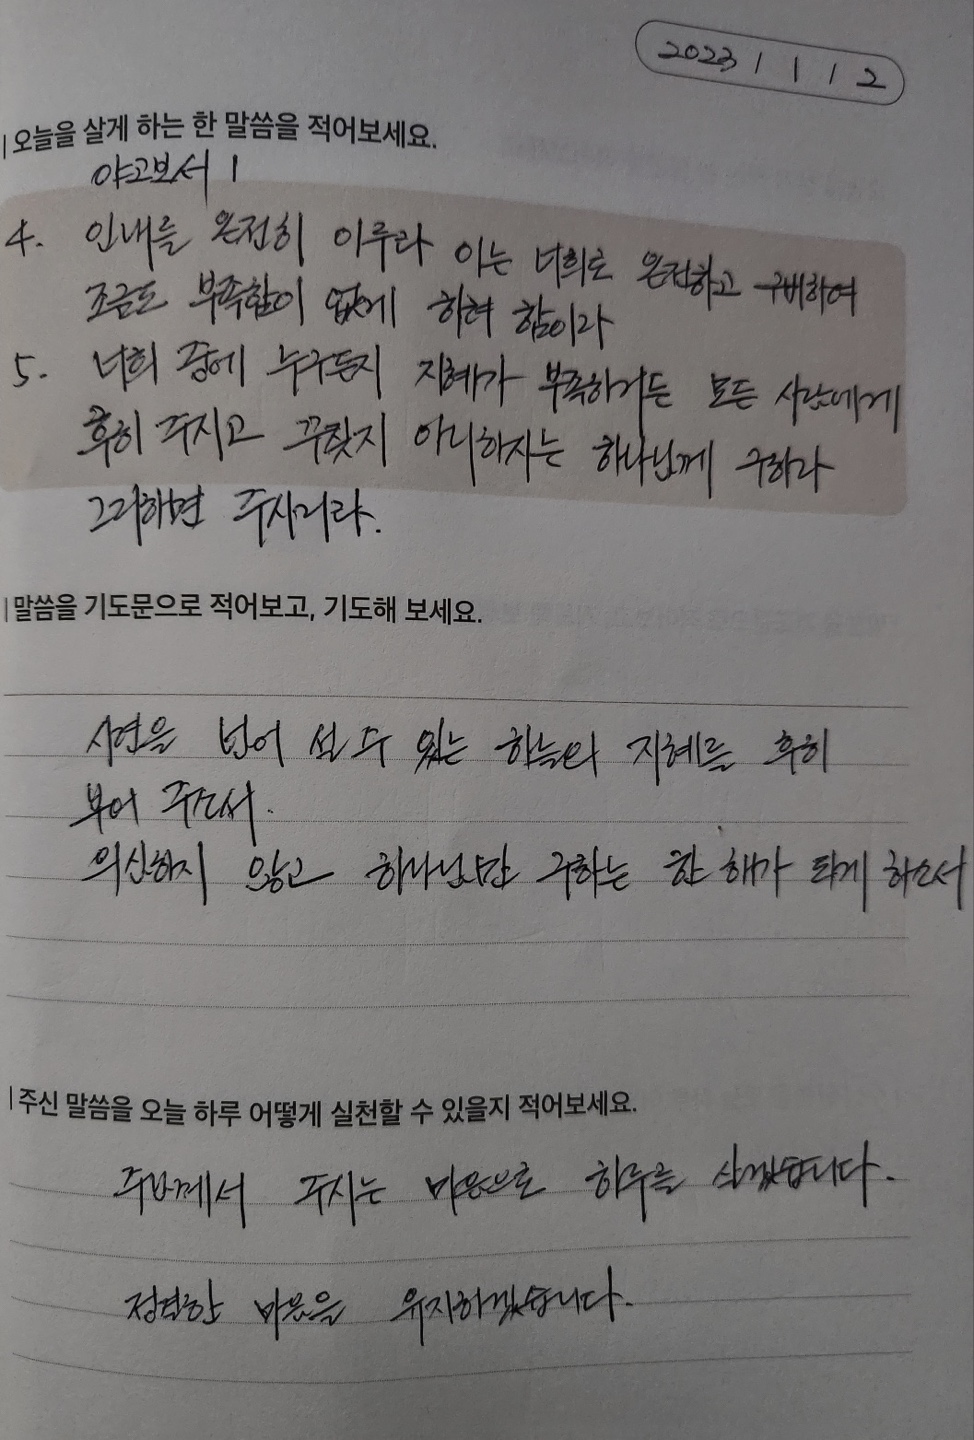 2023 / 1 / 2
오늘을 살게 하는 한 말씀을 적어보세요.
야고보서 1
4. 인내를 온전히 이루라 이는 너희로 온전하고 구비하여
조금도 부족함이 없게 하려 함이라
5. 너희 중에 누구든지 지혜가 부족하거든 모든 사람에게
후히 주시고 꾸짖지 아니하시는 하나님께 구하라
그리하면 주시리라.
말씀을 기도문으로 적어보고, 기도해 보세요.
시련을 넘어 설 수 있는 하늘의 지혜를 후히
부어 주소서.
의심하지 않고 하나님만 구하는 한 해가 되게 하소서
주신 말씀을 오늘 하루 어떻게 실천할 수 있을지 적어보세요.
주님께서 주시는 마음으로 하루를 살겠습니다.
정결한 마음을 유지하겠습니다.